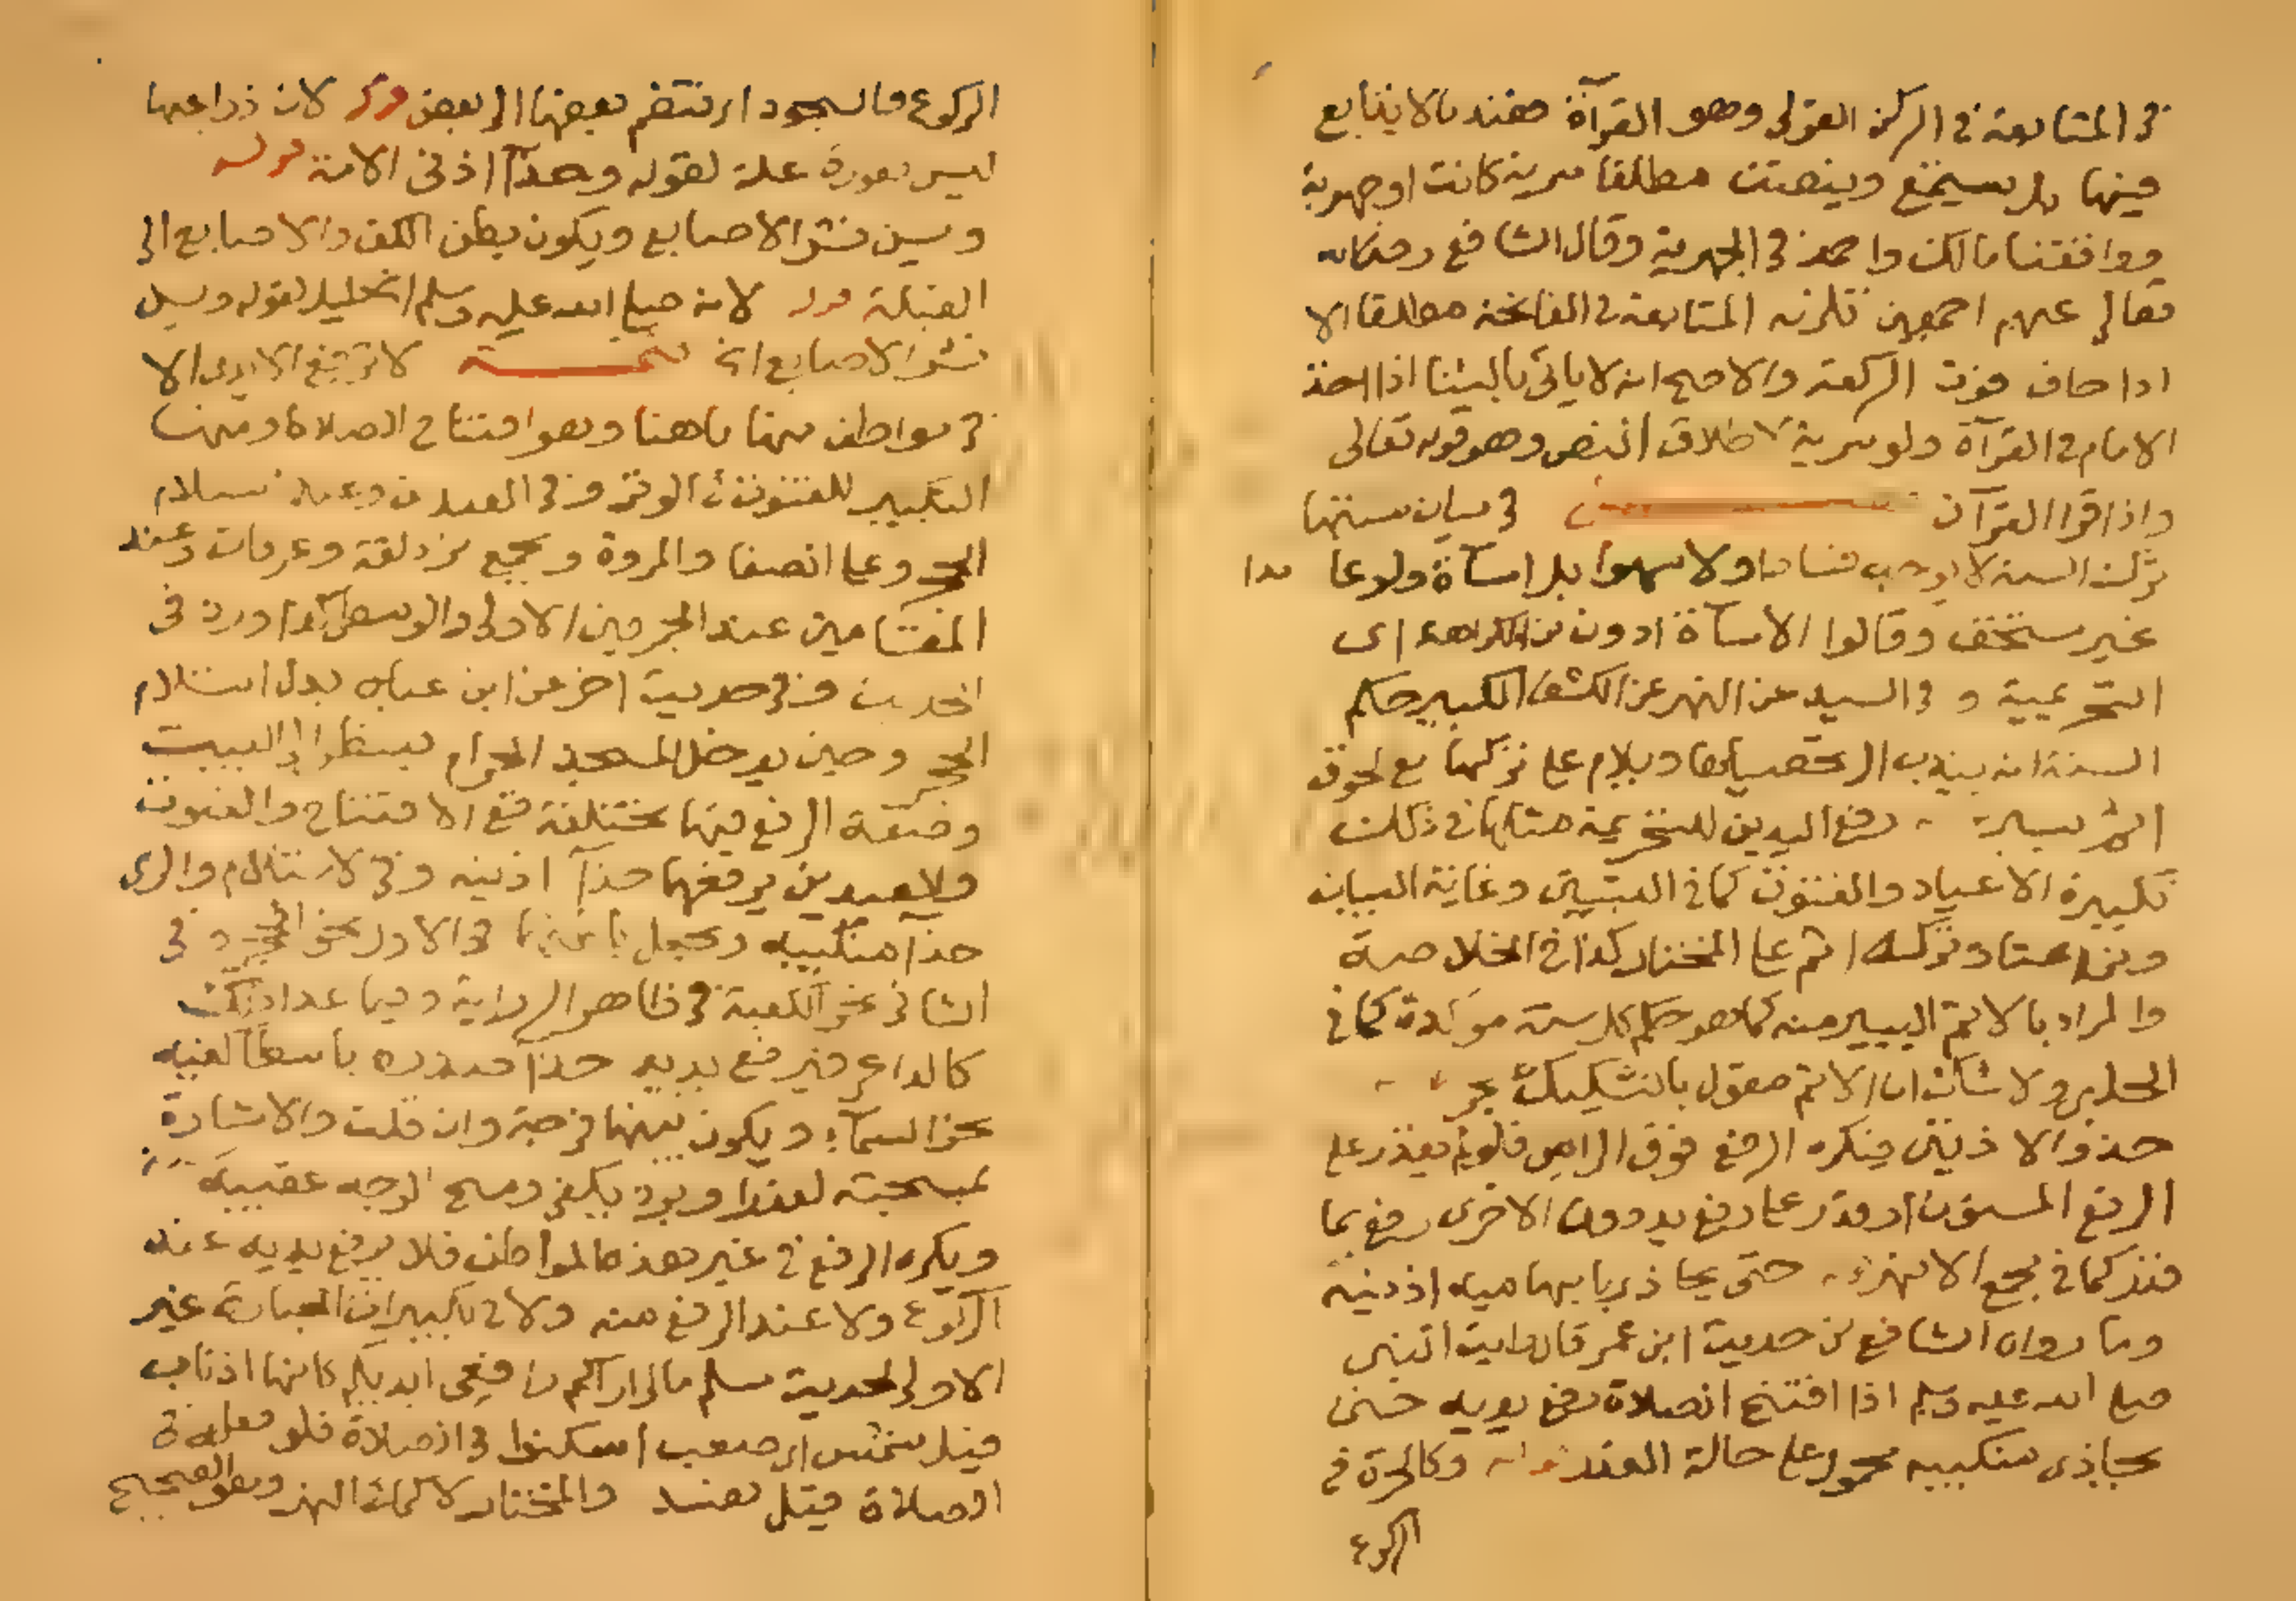 في المتابعة في الركن القولي وهو القرآة فعندنا لا يتابع
فيها بل يستمع وينصت مطلقا سرية كانت او جهرية
ووافقنا مالك واحمد في الجهرية وقال الشافعي
تعالى عنهم اجمعين تلزمه المتابعة في الفاتحة مطلقا الا
اذا خاف فوت الركعة والاصح انه لا ياتي بالثنا اذا اخذ
الامام في القرآة ولو سرية لاطلاق النص وهو قوله تعالى
واذا قرا القرآن في بيان سننها
ترك السنة لا يوجب فسادا ولا سهوا بل اسآة ولو عامدا
غير مستخف وقالوا الاسآة ادون من الكراهة اى
التحريمية و في السيد عن النهر عن الكشف الكبير حكم
السنة انه يندب الى تحصيلها ويلام على تركها مع لحوق
اثم يسير رفع اليدين للتحريمة مثلها في ذلك
تكبيرة الاعياد والقنوت كما في التبيين وغاية البيان
وتركه اثم على المختار كذا في الخلاصة
والمراد بالاثم اليسير منه كما هو حكم كل سنة موكدة كما في
الحلبي ولا شك ان الاثم مقول بالتشكيك بحر
حذو الاذنين فيكره الرفع فوق الراس فلو لم يقدر على
الرفع المسنون او قدر على رفع يد دون الاخرى رفع بما
قدر كما في مجمع الانهر حتى يحاذي بابهاميه اذنيه
وما رواه الشافعي من حديث ابن عمر قال رايت النبى
صلى الله عليه وسلم اذا افتتح الصلاة رفع يديه حتى
يحاذى منكبيه محمول على حالة العذر وكالحرة في
الركوع
الركوع والسجود اى تنضم بعضها الى بعض قوله لان ذراعيها
ليس بعورة علة لقوله وحذآ اذني الامة قوله
ويسن نشر الاصابع ويكون بطن الكف والاصابع الى
القبلة قوله لانه صلى الله عليه وسلم الخ تعليل لقوله ويسن
نشر الاصابع الخ تتمة لا ترفع الايدى الا
في مواطن منها ما هنا وهو افتتاح الصلاة ومنها
التكبير للقنوت في الوتر وفي العيدين وعند استلام
الحجر وعلى الصفا والمروة وبجمع مزدلفة وعرفات وعند
المقامين عند الجمرتين الاولى والوسطى كذا ورد في
الحديث وفي حديث اخر عن ابن عباس بدل استلام
الحجر وحين يدخل المسجد الحرام فينظر الى البيت
وصفة الرفع فيها مختلفة ففي الافتتاح والقنوت
والعيدين يرفعهما حذآ اذنيه وفي الاستلام والرمى
حذآ منكبيه ويجعل باطنهما في الاول نحو الحجر وفي
الثاني نحو الكعبة في ظاهر الرواية وفيما عدا ذلك
كالداعى فيرفع يديه حذآ صدره باسطا كفيه
نحو السمآء ويكون بينهما فرجة وان قلت والاشارة
بمسبحته لعذر او برد يكفي ومسح الوجه عقيبه
ويكره الرفع في غير هذه المواطن فلا يرفع يديه عند
الركوع ولا عند الرفع منه ولا في تكبيرات الجنازة غير
الاولى لحديث مسلم مالى اراكم رافعى ايديكم كانها اذناب
خيل شمس اى صعب اسكنوا في الصلاة فلو فعله في
الصلاة قيل تفسد والمختار لا كما في النهر وهو الصحيح